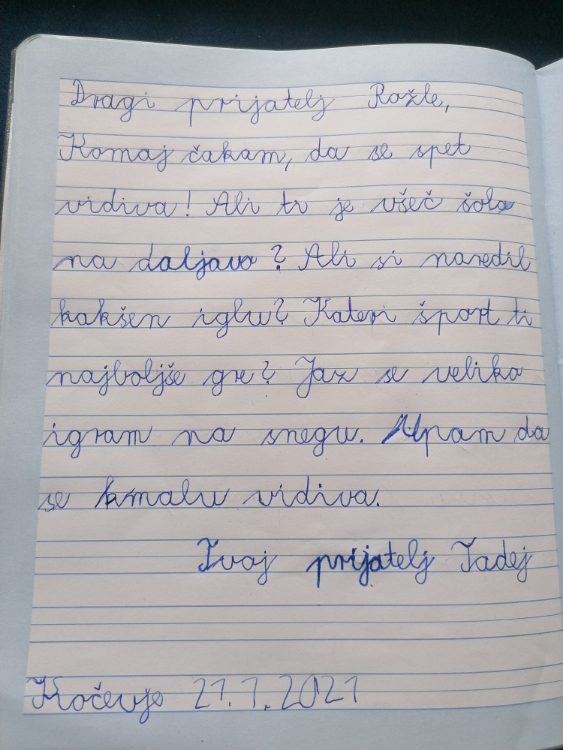 Dragi prijatelj Rožle,
Komaj čakam, da se spet
vidiva! Ali ti je všeč šola
na daljavo? Ali si naredil
kakšen iglu? Kateri šport ti
najboljše gre? Jaz se veliko
igram na snegu. Upam da
se kmalu vidiva.
Tvoj prijatelj Tadej
Kočevje 21.1.2021